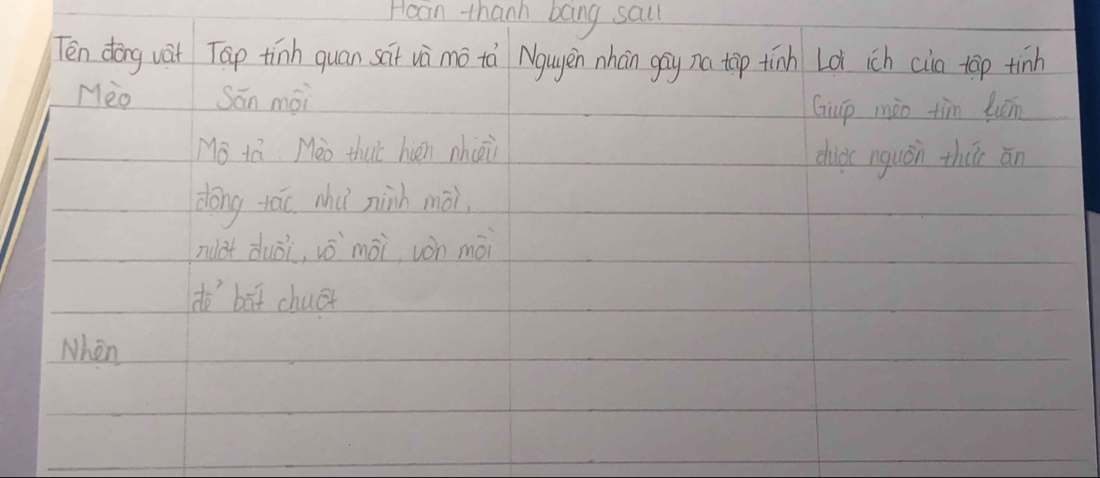 Hoàn thành bảng sau
Tên động vật Tập tính quan sát và mô tả Nguyên nhân gây ra tập tính Lợi ích của tập tính
Mèo Săn mồi Giúp mèo tìm kiếm
Mô tả. Mèo thực hiện nhiều được nguồn thức ăn
động tác như rình mồi,
rượt đuổi, vồ mồi, vờn mồi
để bắt chuột
Nhện